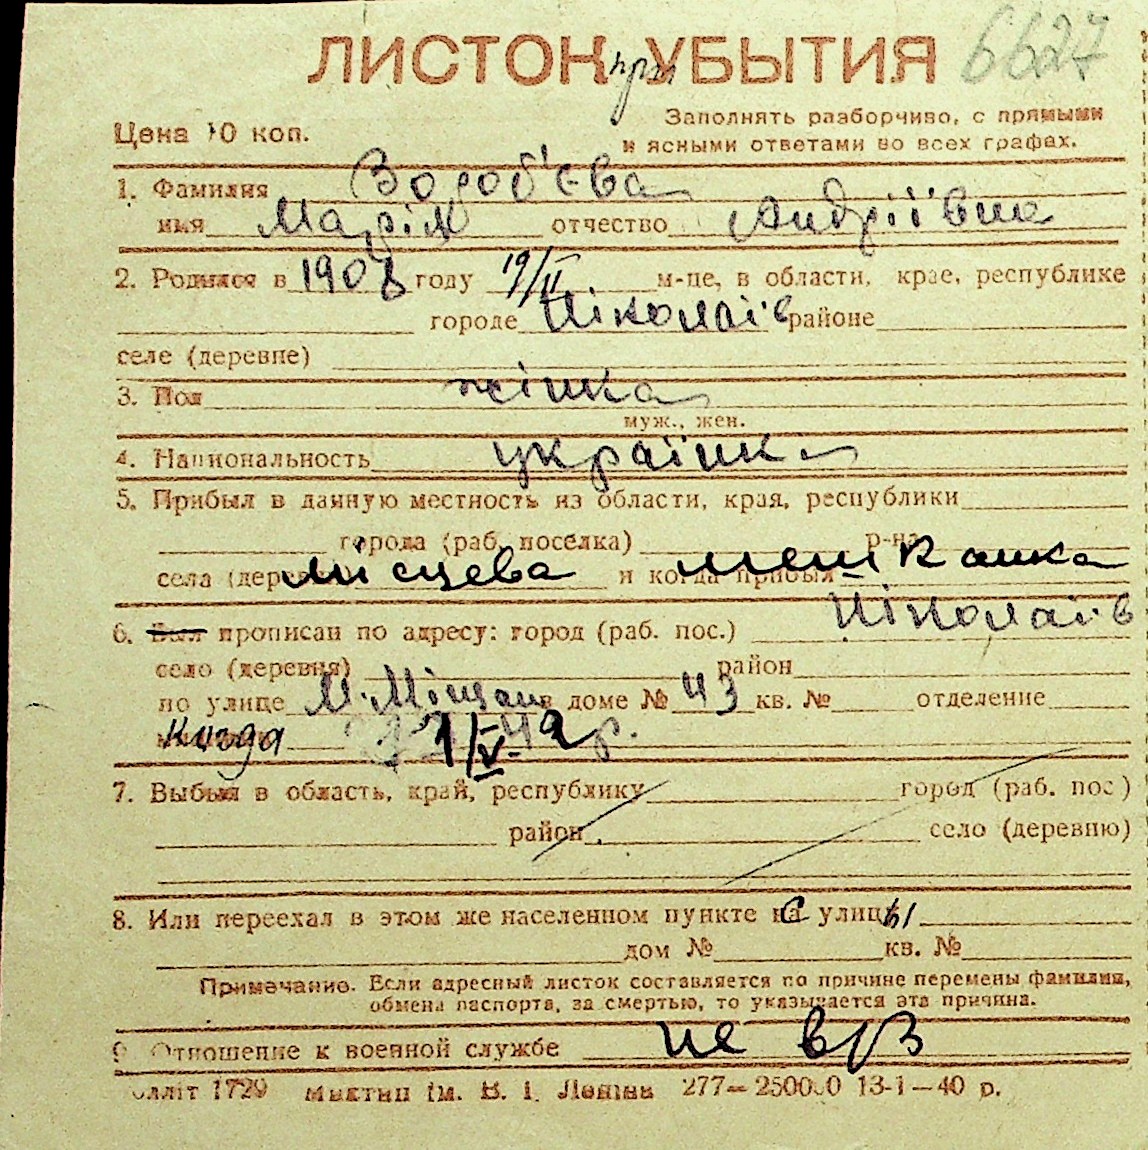 ЛИСТОК при УБЫТИЯ 6627
Цена 10 коп.
Заполнять разборчиво, с прямыми
и ясными ответами во всех графах.
1. Фамилия Вороб'єва
имя Марія отчество Андріївна
2. Родился в 1908 году 19/II м-це, в области, крае, республике
городе Ніколаїв районе
селе (деревне)
3. Пол жінка
муж., жен.
4. Национальность українка
5. Прибыл в данную местность из области, края, республики
города (раб. поселка) р-на
села (дерев місцева и когда прибыл мешканка
6. Был прописан по адресу: город (раб. пос.) Ніколаїв
село (деревня) район
по улице М. Міщан в доме № 43 кв. № отделение
когда 1/V-42 р.
7. Выбыл в область, край, республику город (раб. пос.)
район село (деревню)
8. Или переехал в этом же населенном пункте с улицы
дом № кв. №
Примечание. Если адресный листок составляется по причине перемены фамилии,
обмена паспорта, за смертью, то указывается эта причина.
9 Отношение к военной службе не в/з
олліт 1729 Миктип ім. В. І. Леніна 277—250000 13-1—40 р.